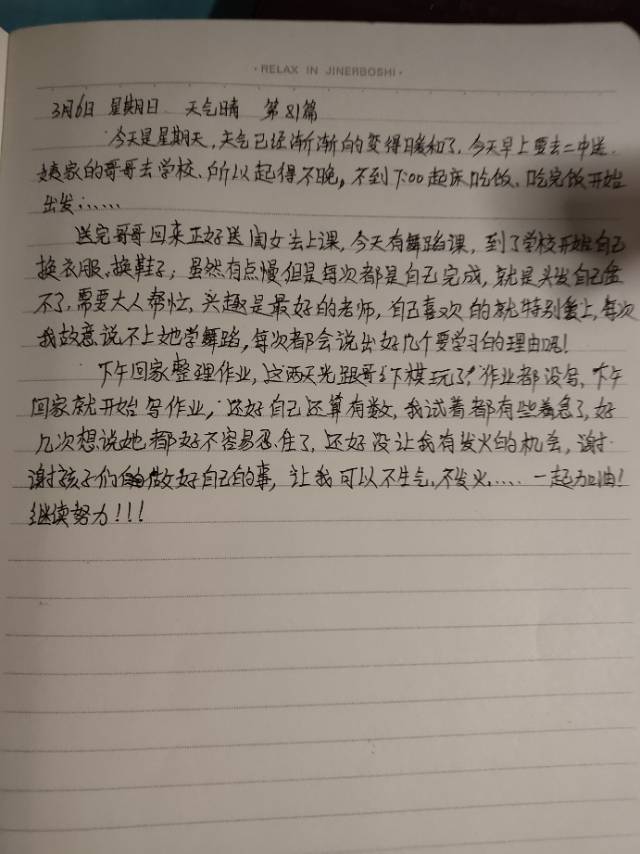 · RELAX IN JINERBOSHI ·
3月6日 星期日 天气晴 第81篇
今天是星期天,天气已经渐渐的变得暖和了,今天早上要去二中送
姨家的哥哥去学校、所以起得不晚,不到7:00起床吃饭、吃完饭开始
出发……
送完哥哥回来正好送闺女去上课,今天有舞蹈课,到了学校开始自己
换衣服、换鞋子;虽然有点慢但是每次都是自己完成,就是头发自己盘
不了,需要大人帮忙,兴趣是最好的老师,自己喜欢的就特别爱上,每次
我故意说不上她学舞蹈,每次都会说出好几个要学习的理由呢!
下午回家整理作业,这两天光跟哥哥下棋玩了,作业都没写,下午
回家就开始写作业,还好自己还算有数,我试着都有些着急了,好
几次想说她都好不容易忍住了,还好没让我有发火的机会,谢
谢孩子们做好自己的事,让我可以不生气,不发火……一起加油!
继续努力!!!